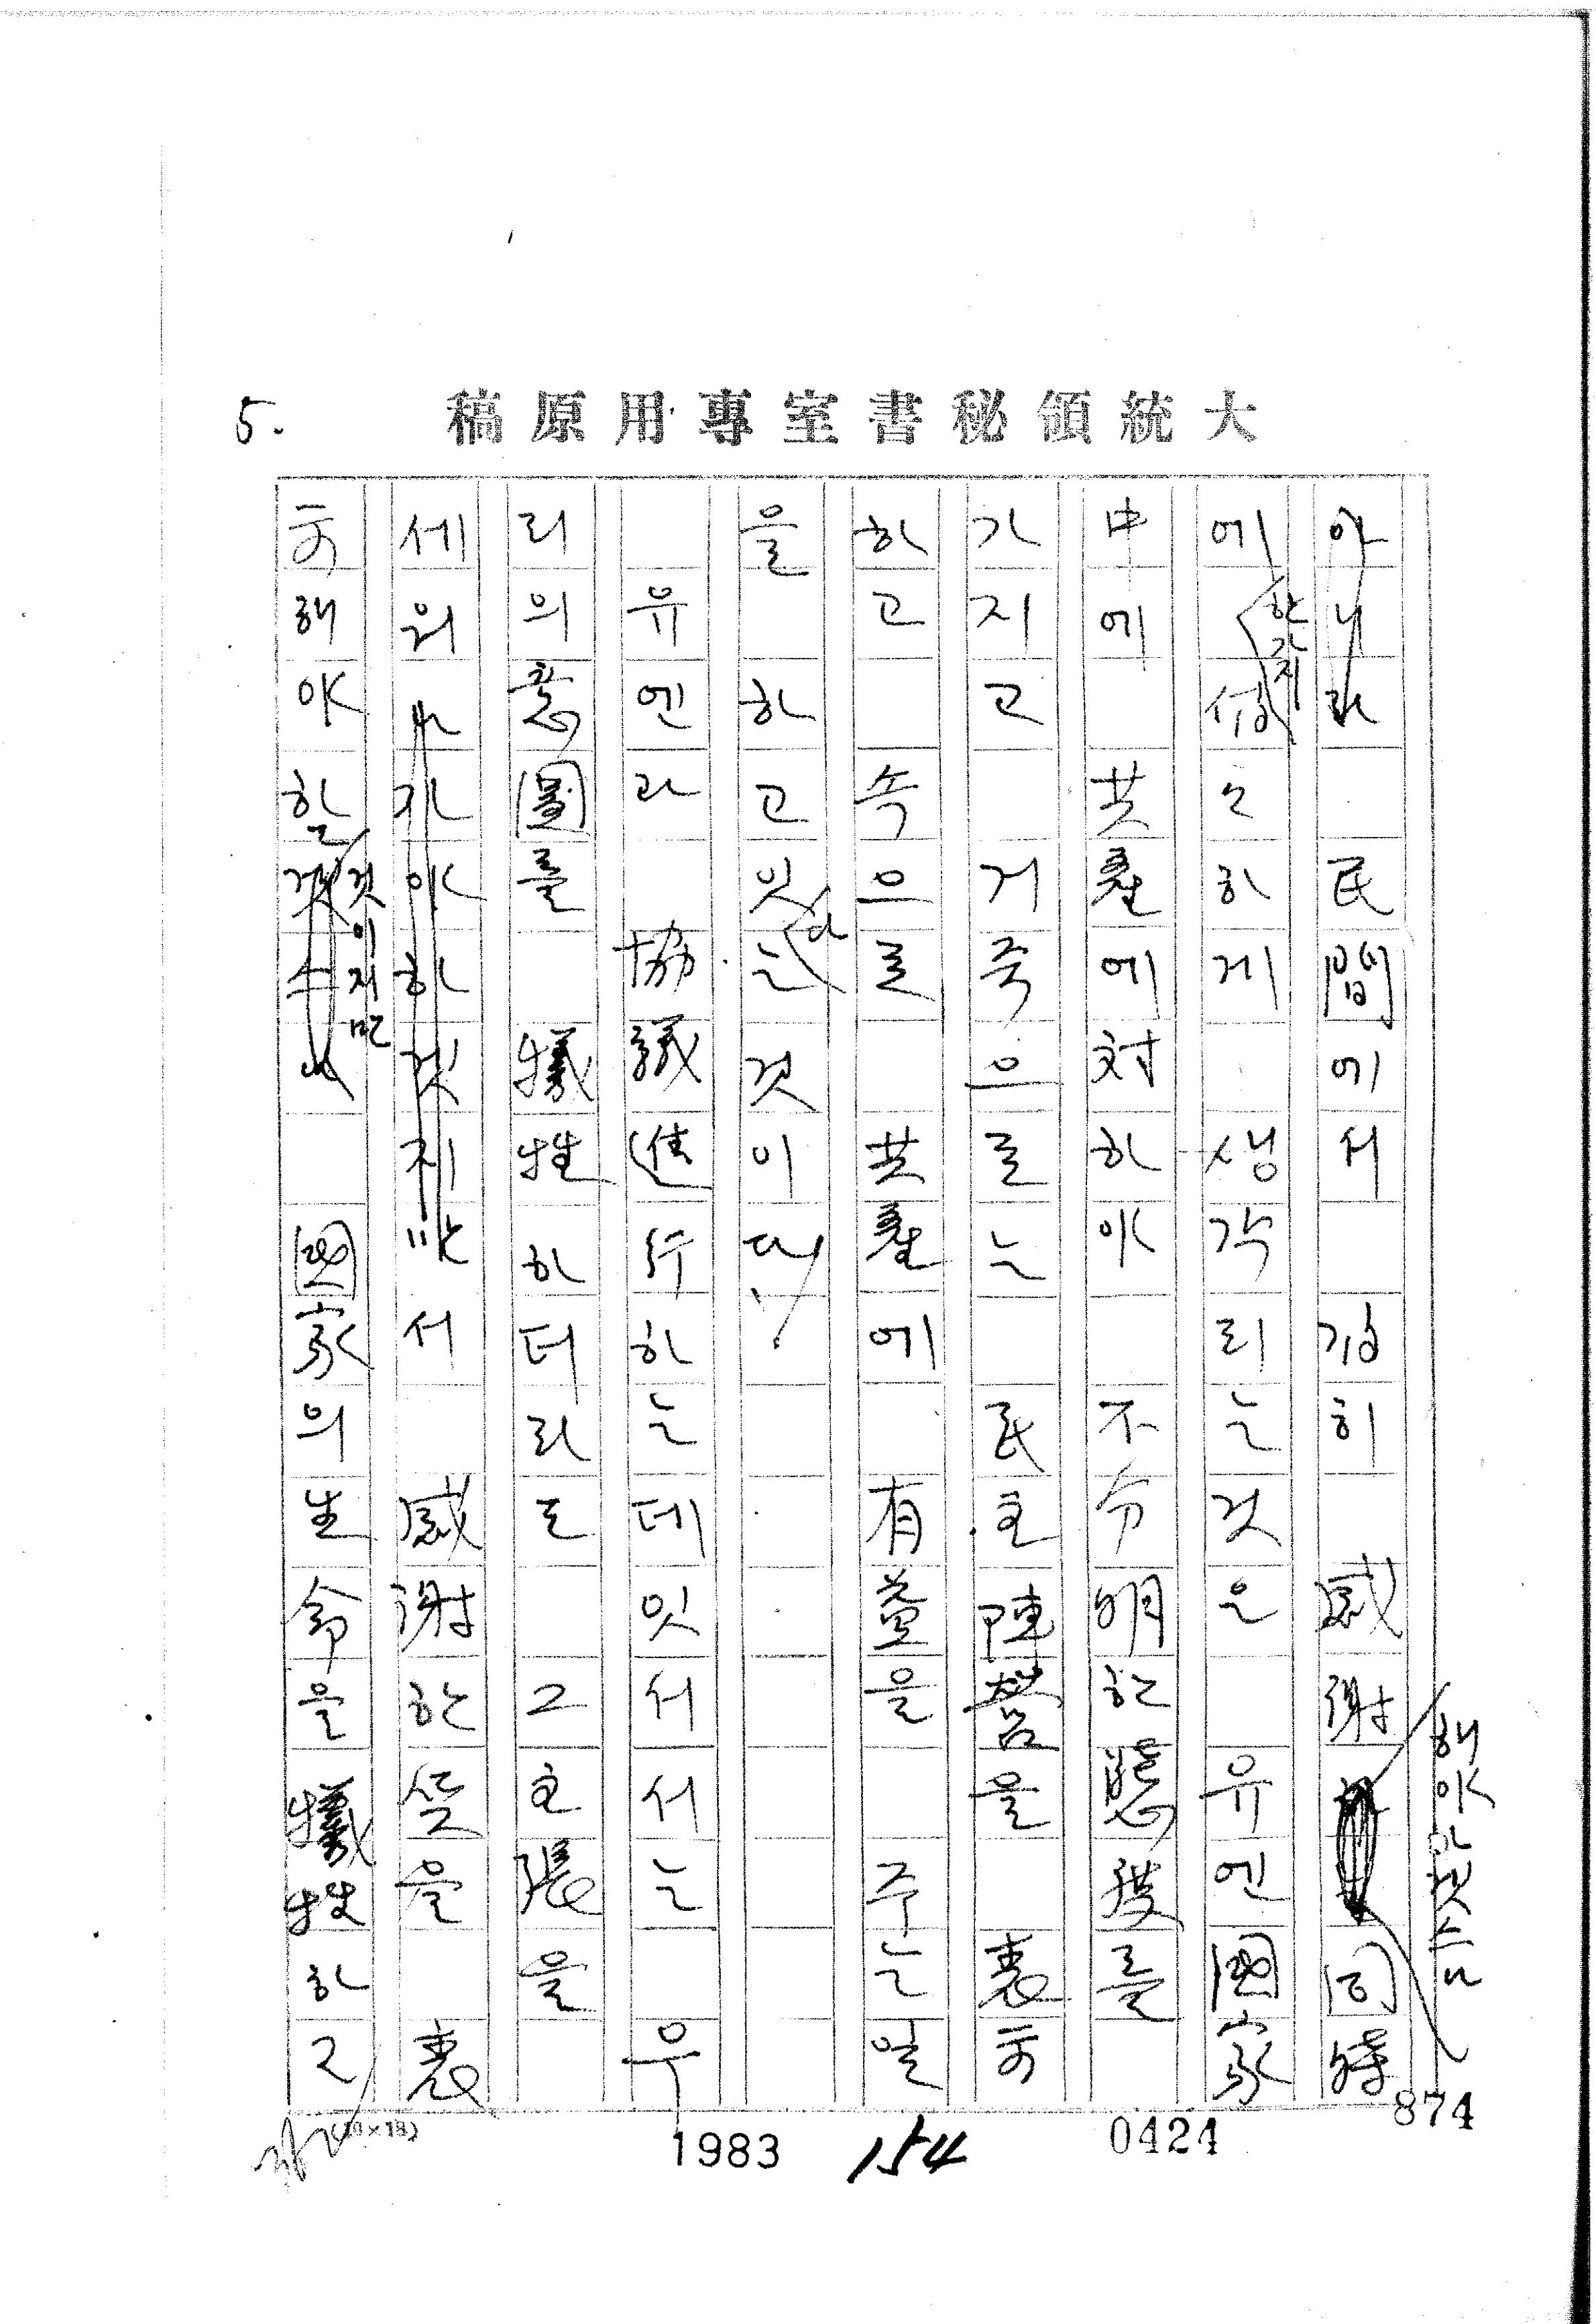 大統領秘書室專用原稿
5.
아니라 民間에서 깊히 感謝 同時
해야할것스니
에 한가지 섭々하게 생각되는것은 유엔國家
中에 共產에対하야 不分明한態度를
가지고 거죽으로는 民主陣營을 表示
하고 속으로 共產에 有益을 주는일
을 하고잇다는것이다.
유엔과 協議進行하는데잇서서는 우
리의意圖를 犧牲하더라도 그主張을
세워나가야하것지 서 感謝한뜻을 表
示해야할 것이지만 國家의生命을犧牲하고
(10×18)
1983
154
0424
874